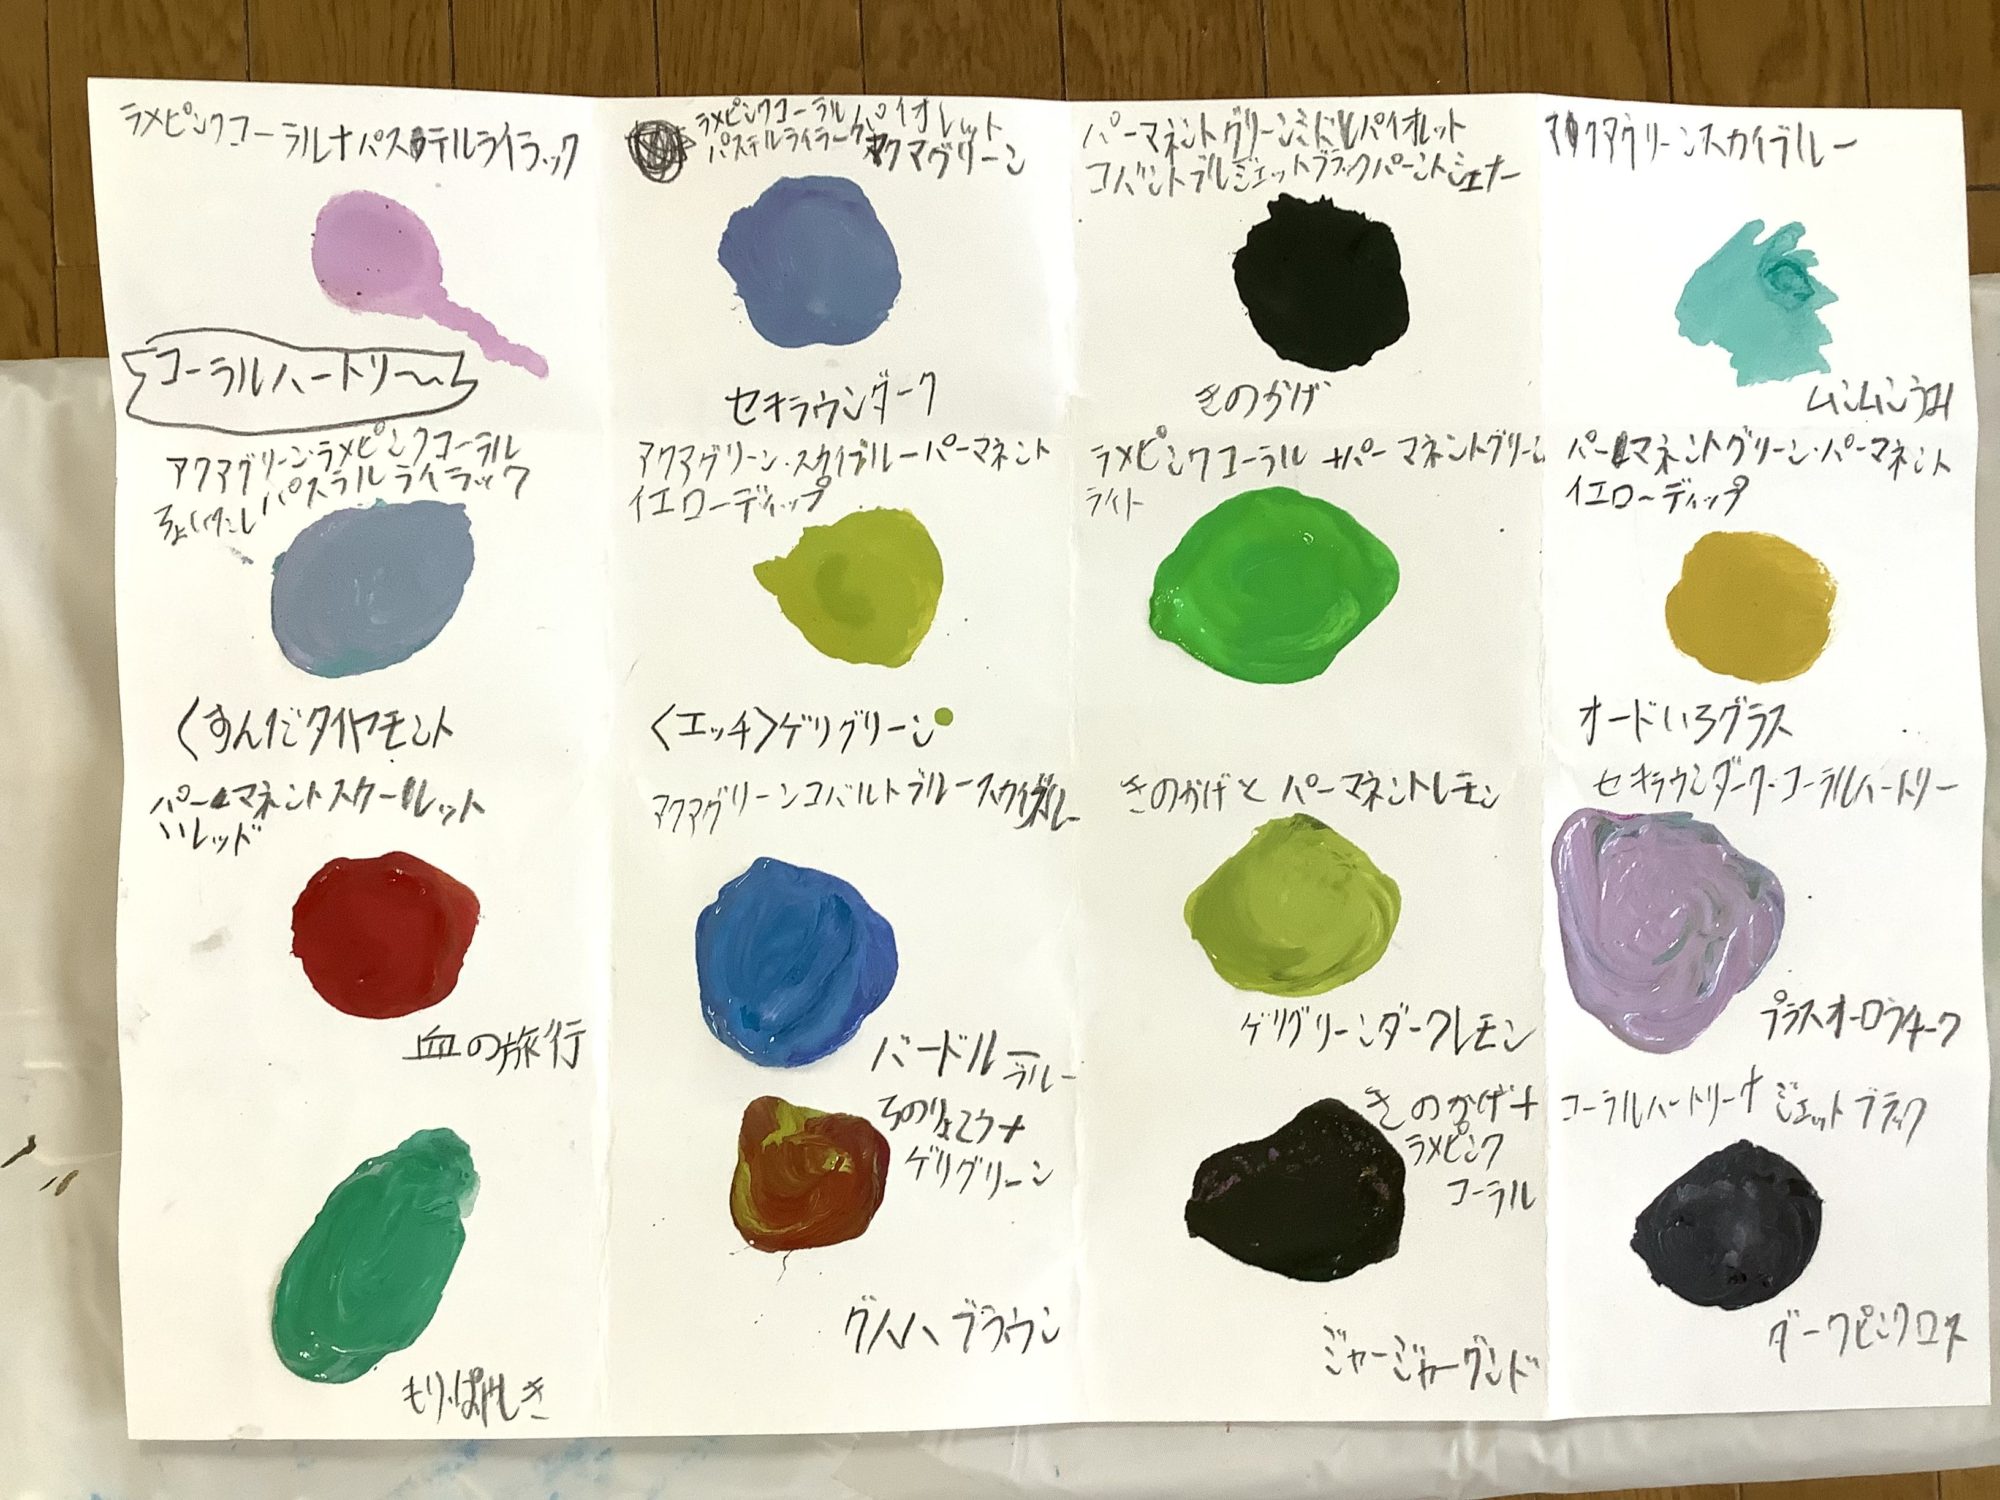 ラメピンクコーラル+パステルライラック
コーラルハートリー
ラメピンクコーラルバイオレット
パステルライラックアクアグリーン
セキラウンダーク
パーマネントグリーンミドルバイオレット
コバントブルジェットブラックバーントシェナー
きのかげ
アクアグリーンスカイブルー
ムンムンうみ
アクアグリーン・ラメピンクコーラル
パステルライラック
くすんだダイヤモンド
アクアグリーン・スカイブルーパーマネント
イエローディップ
〈エッチ〉ゲリグリーン
ラメピンクコーラル+パーマネントグリーン
ライト
パーマネントグリーン・パーマネント
イエローディップ
オードいろグラス
パーマネントスカーレット
レッド
血の旅行
アクアグリーンコバルトブルースカイブルー
バードル
ブルー
きのかげとパーマネントレモン
ゲリグリーンダークレモン
セキラウンダーク・コーラルハートリー
プラスオーロラダーク
もり・ぱ
ちのりょこう+
ゲリグリーン
ブラウン
きのかげ+
ラメピンク
コーラル
ジャージャーグンド
コーラルハートリー+ジェットブラック
ダークピンクロス